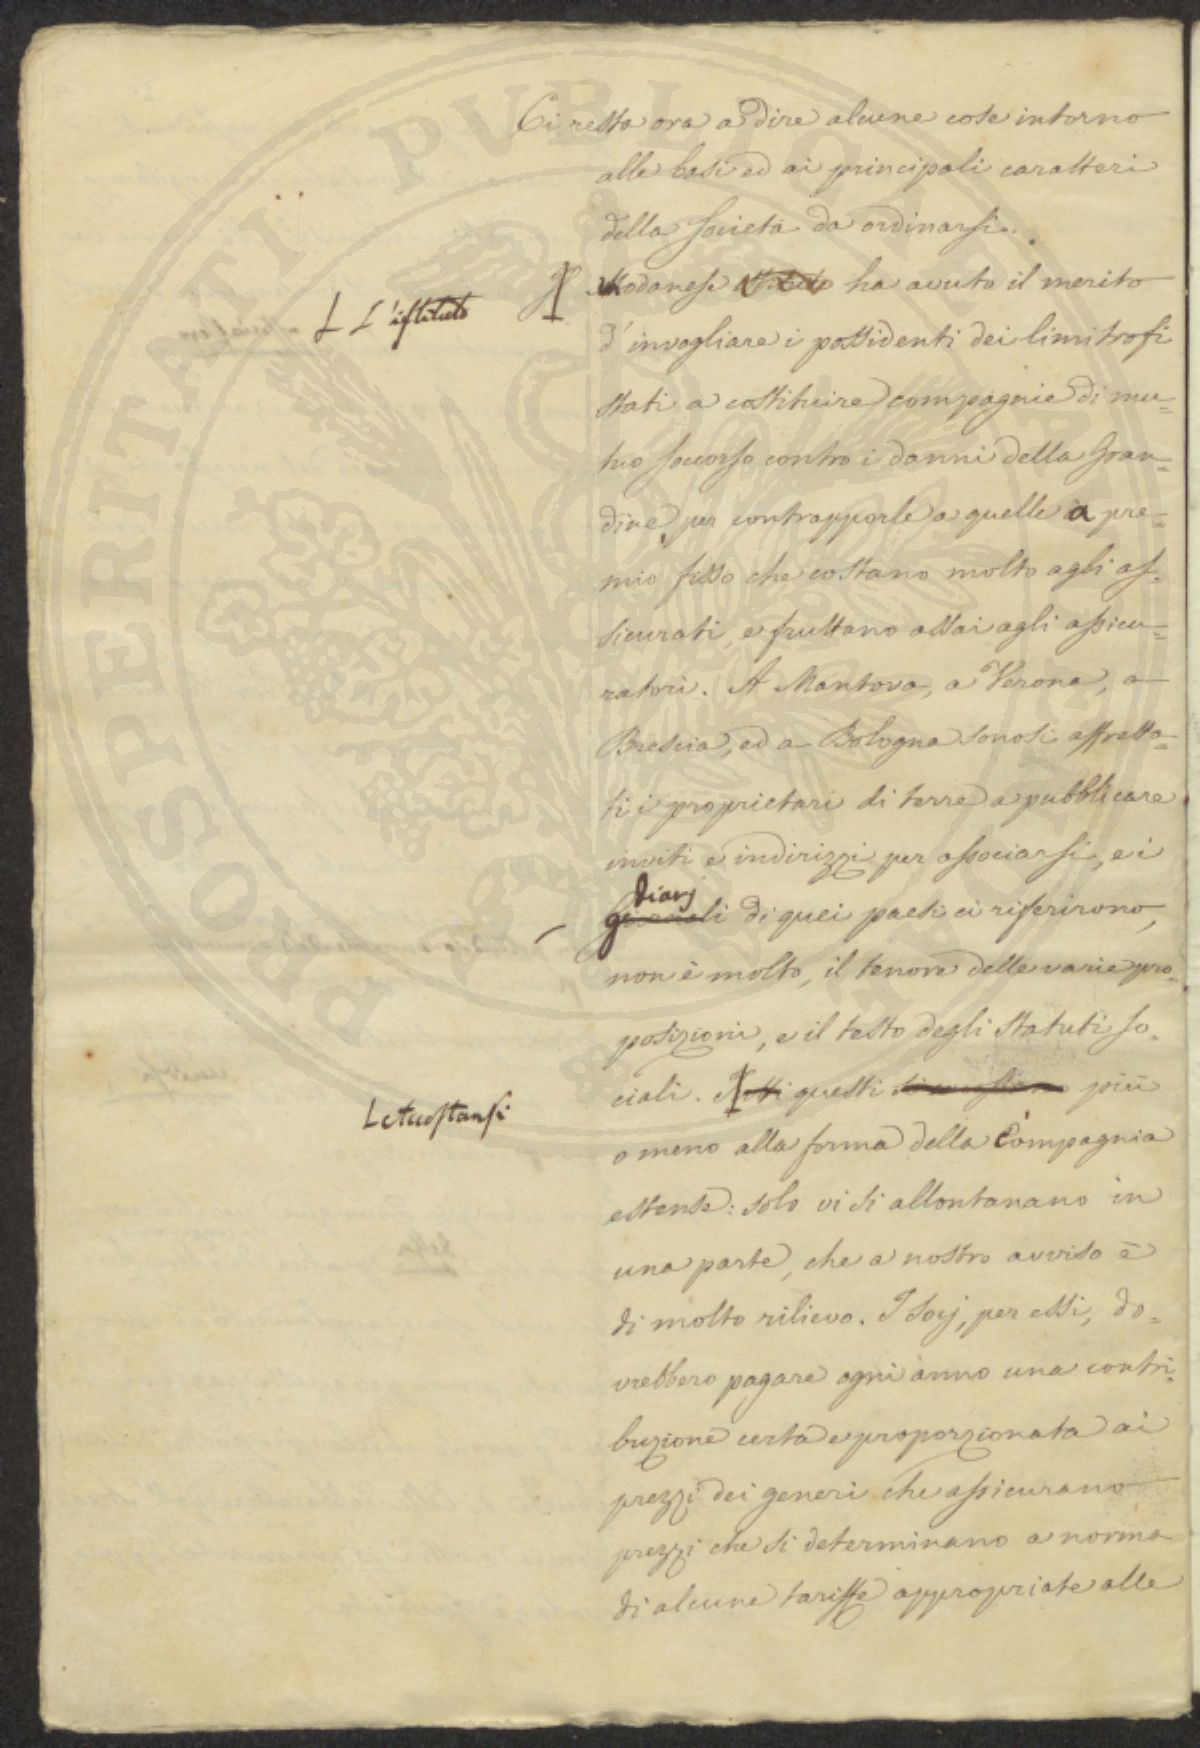 Ci resta ora a dire alcune cose intorno
alle basi ed ai principali caratteri
della Società da ordinarsi.
L L'istituto
Modanese istituto ha avuto il merito
d'invogliare i possidenti dei limitrofi
stati a costituire compagnie di mu=
tuo soccorso contro i danni della Gran=
dine, per contrapporle a quelle a pre=
mio fisso che costano molto agli as=
sicurati, e fruttano assai agli assicu=
ratori. A Mantova, a Verona, a
Brescia, ed a Bologna sonosi affretta=
ti i proprietari di terre a pubblicare
inviti e indirizzi per associarsi, e i
diarj
giornali di quei paesi ci riferirono,
non è molto, il tenore delle varie pro=
posizioni, e il testo degli Statuti so=
ciali. Tutti questi più
L accostansi
o meno alla forma della Compagnia
estense: solo vi si allontanano in
una parte, che a nostro avviso è
di molto rilievo. I Socj, per essi, do=
vrebbero pagare ogni anno una contri=
buzione certa e proporzionata ai
prezzi dei generi che assicurano
prezzi che si determinano a norma
di alcune tariffe appropriate alle
PROSPERITATI PUBLICAE